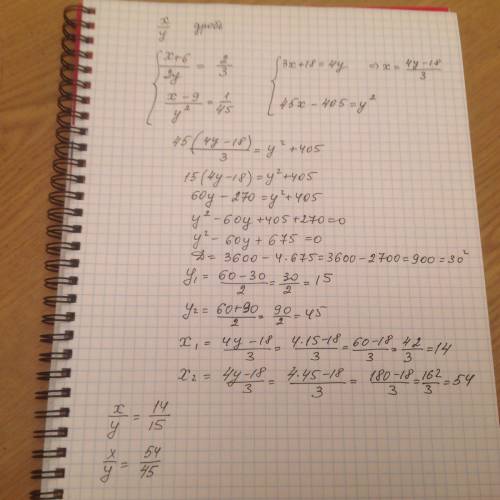 x/y дробь
{ (x+6)/2y = 2/3 { 3x+18=4y ⇒ x = (4y-18)/3
{ (x-9)/y² = 1/45 { 45x-405=y²
45(4y-18)/3 = y²+405
15(4y-18)=y²+405
60y-270=y²+405
y²-60y+405+270=0
y²-60y+675=0
D= 3600-4·675=3600-2700=900=30²
y₁= (60-30)/2 = 30/2 = 15
y₂= (60+90)/2 = 90/2 = 45
x₁= (4y-18)/3 = (4·15-18)/3 = (60-18)/3 = 42/3 = 14
x₂= (4y-18)/3 = (4·45-18)/3 = (180-18)/3 = 162/3 = 54
x/y = 14/15
x/y = 54/45